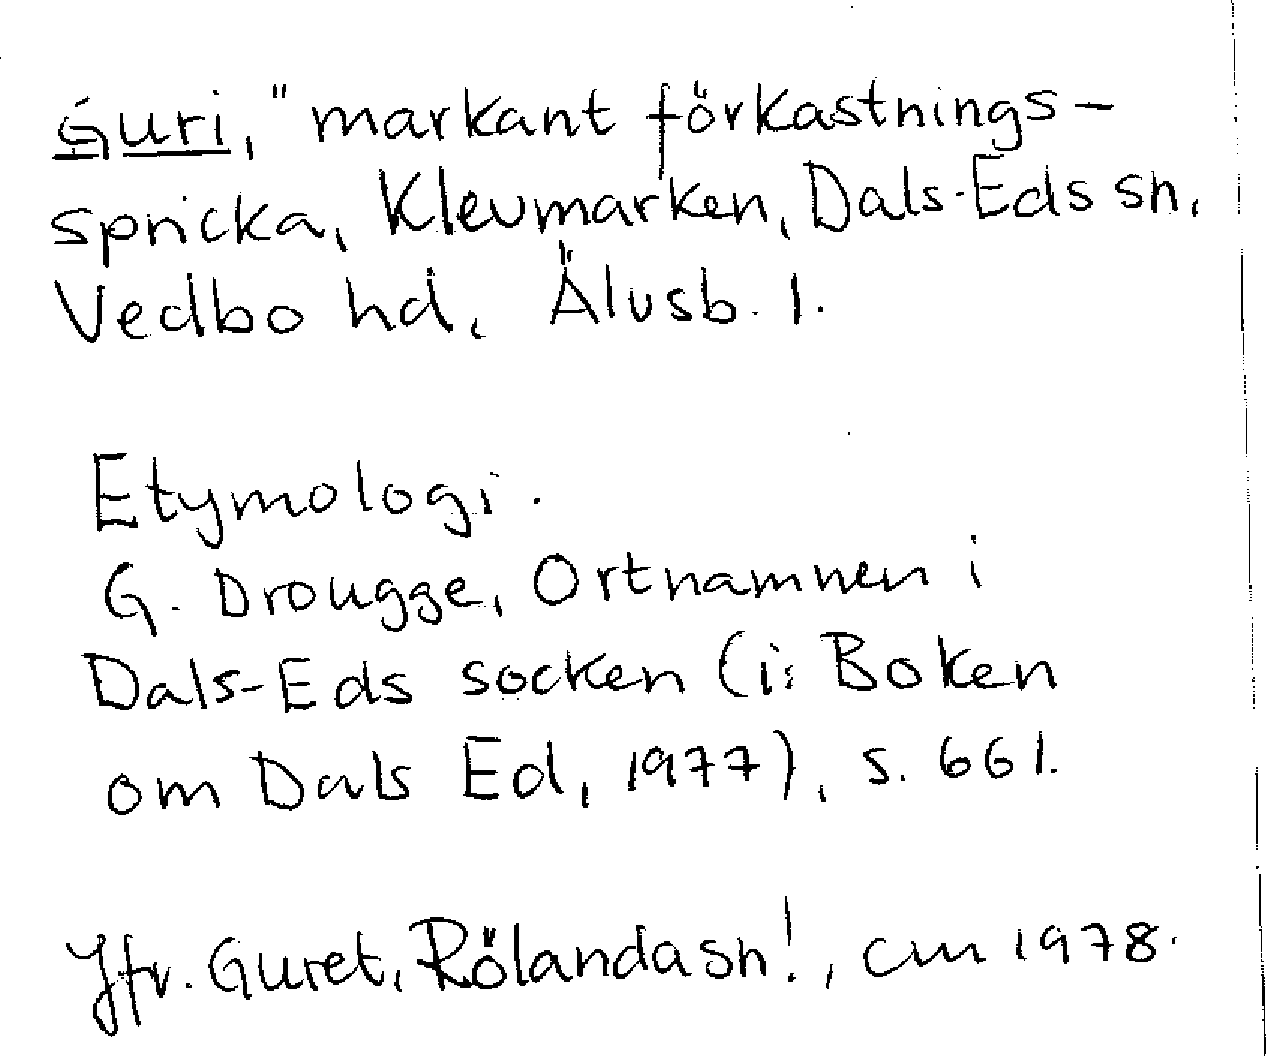 Guri, "markant förkastnings-
spricka, Klevmarken, Dals-Eds sn,
Vedbo hd, Älvsb. l.
Etymologi.
G. Drougge, Ortnamnen i
Dals-Eds socken (i: Boken
om Dals Ed, 1977), s. 66 l.
Jfr. Guret, Rölanda sn!, cm 1978.